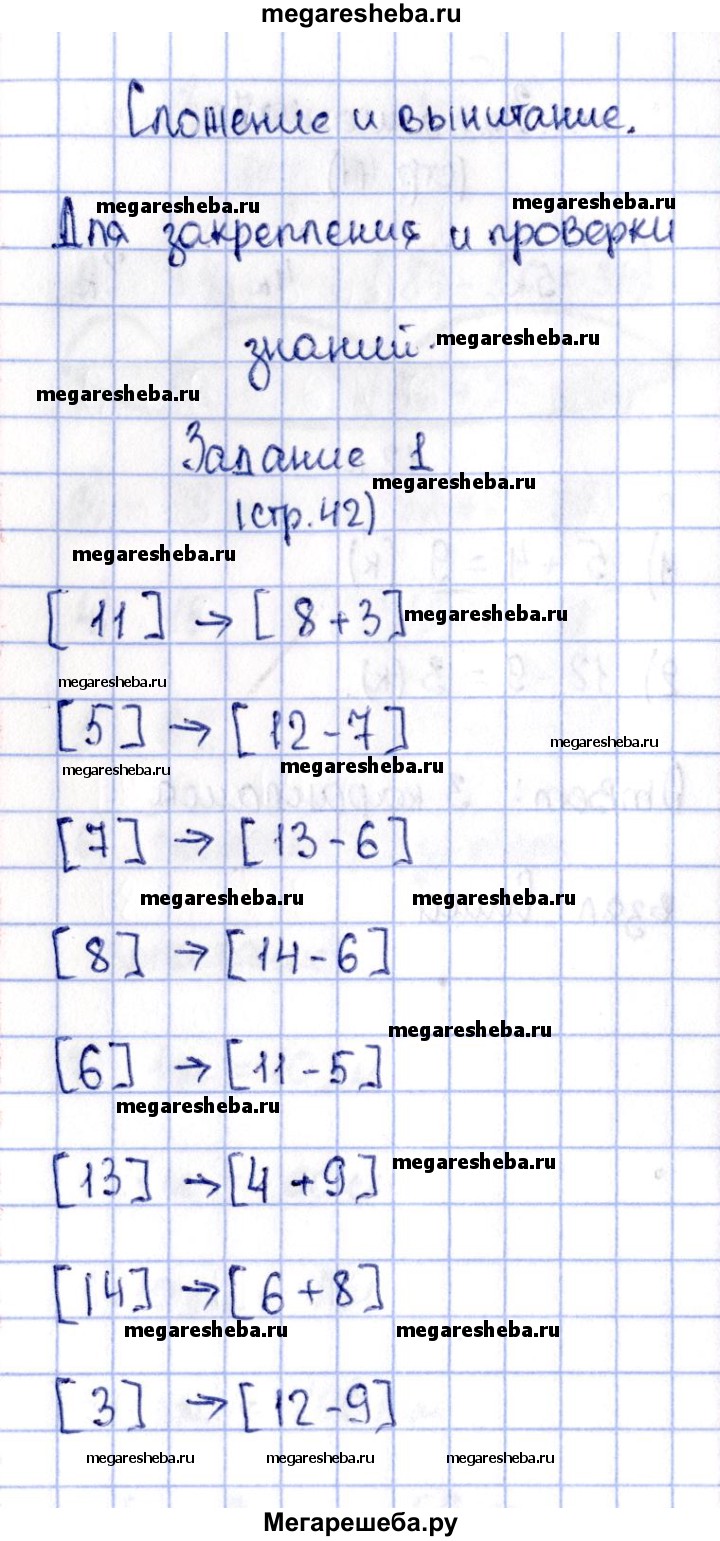 megaresheba.ru
Сложение и вычитание.
megaresheba.ru megaresheba.ru
Для закрепления и проверки
знаний. megaresheba.ru
megaresheba.ru
Задание 1
megaresheba.ru
(стр.42)
megaresheba.ru
[11] → [8+3] megaresheba.ru
megaresheba.ru
[5] → [12-7]
megaresheba.ru
megaresheba.ru megaresheba.ru
[7] → [13-6]
megaresheba.ru megaresheba.ru
[8] → [14-6]
megaresheba.ru
[6] → [11-5]
megaresheba.ru
[13] → [4+9] megaresheba.ru
[14] → [6+8]
megaresheba.ru megaresheba.ru
[3] → [12-9]
megaresheba.ru megaresheba.ru megaresheba.ru
Мегарешеба.ру